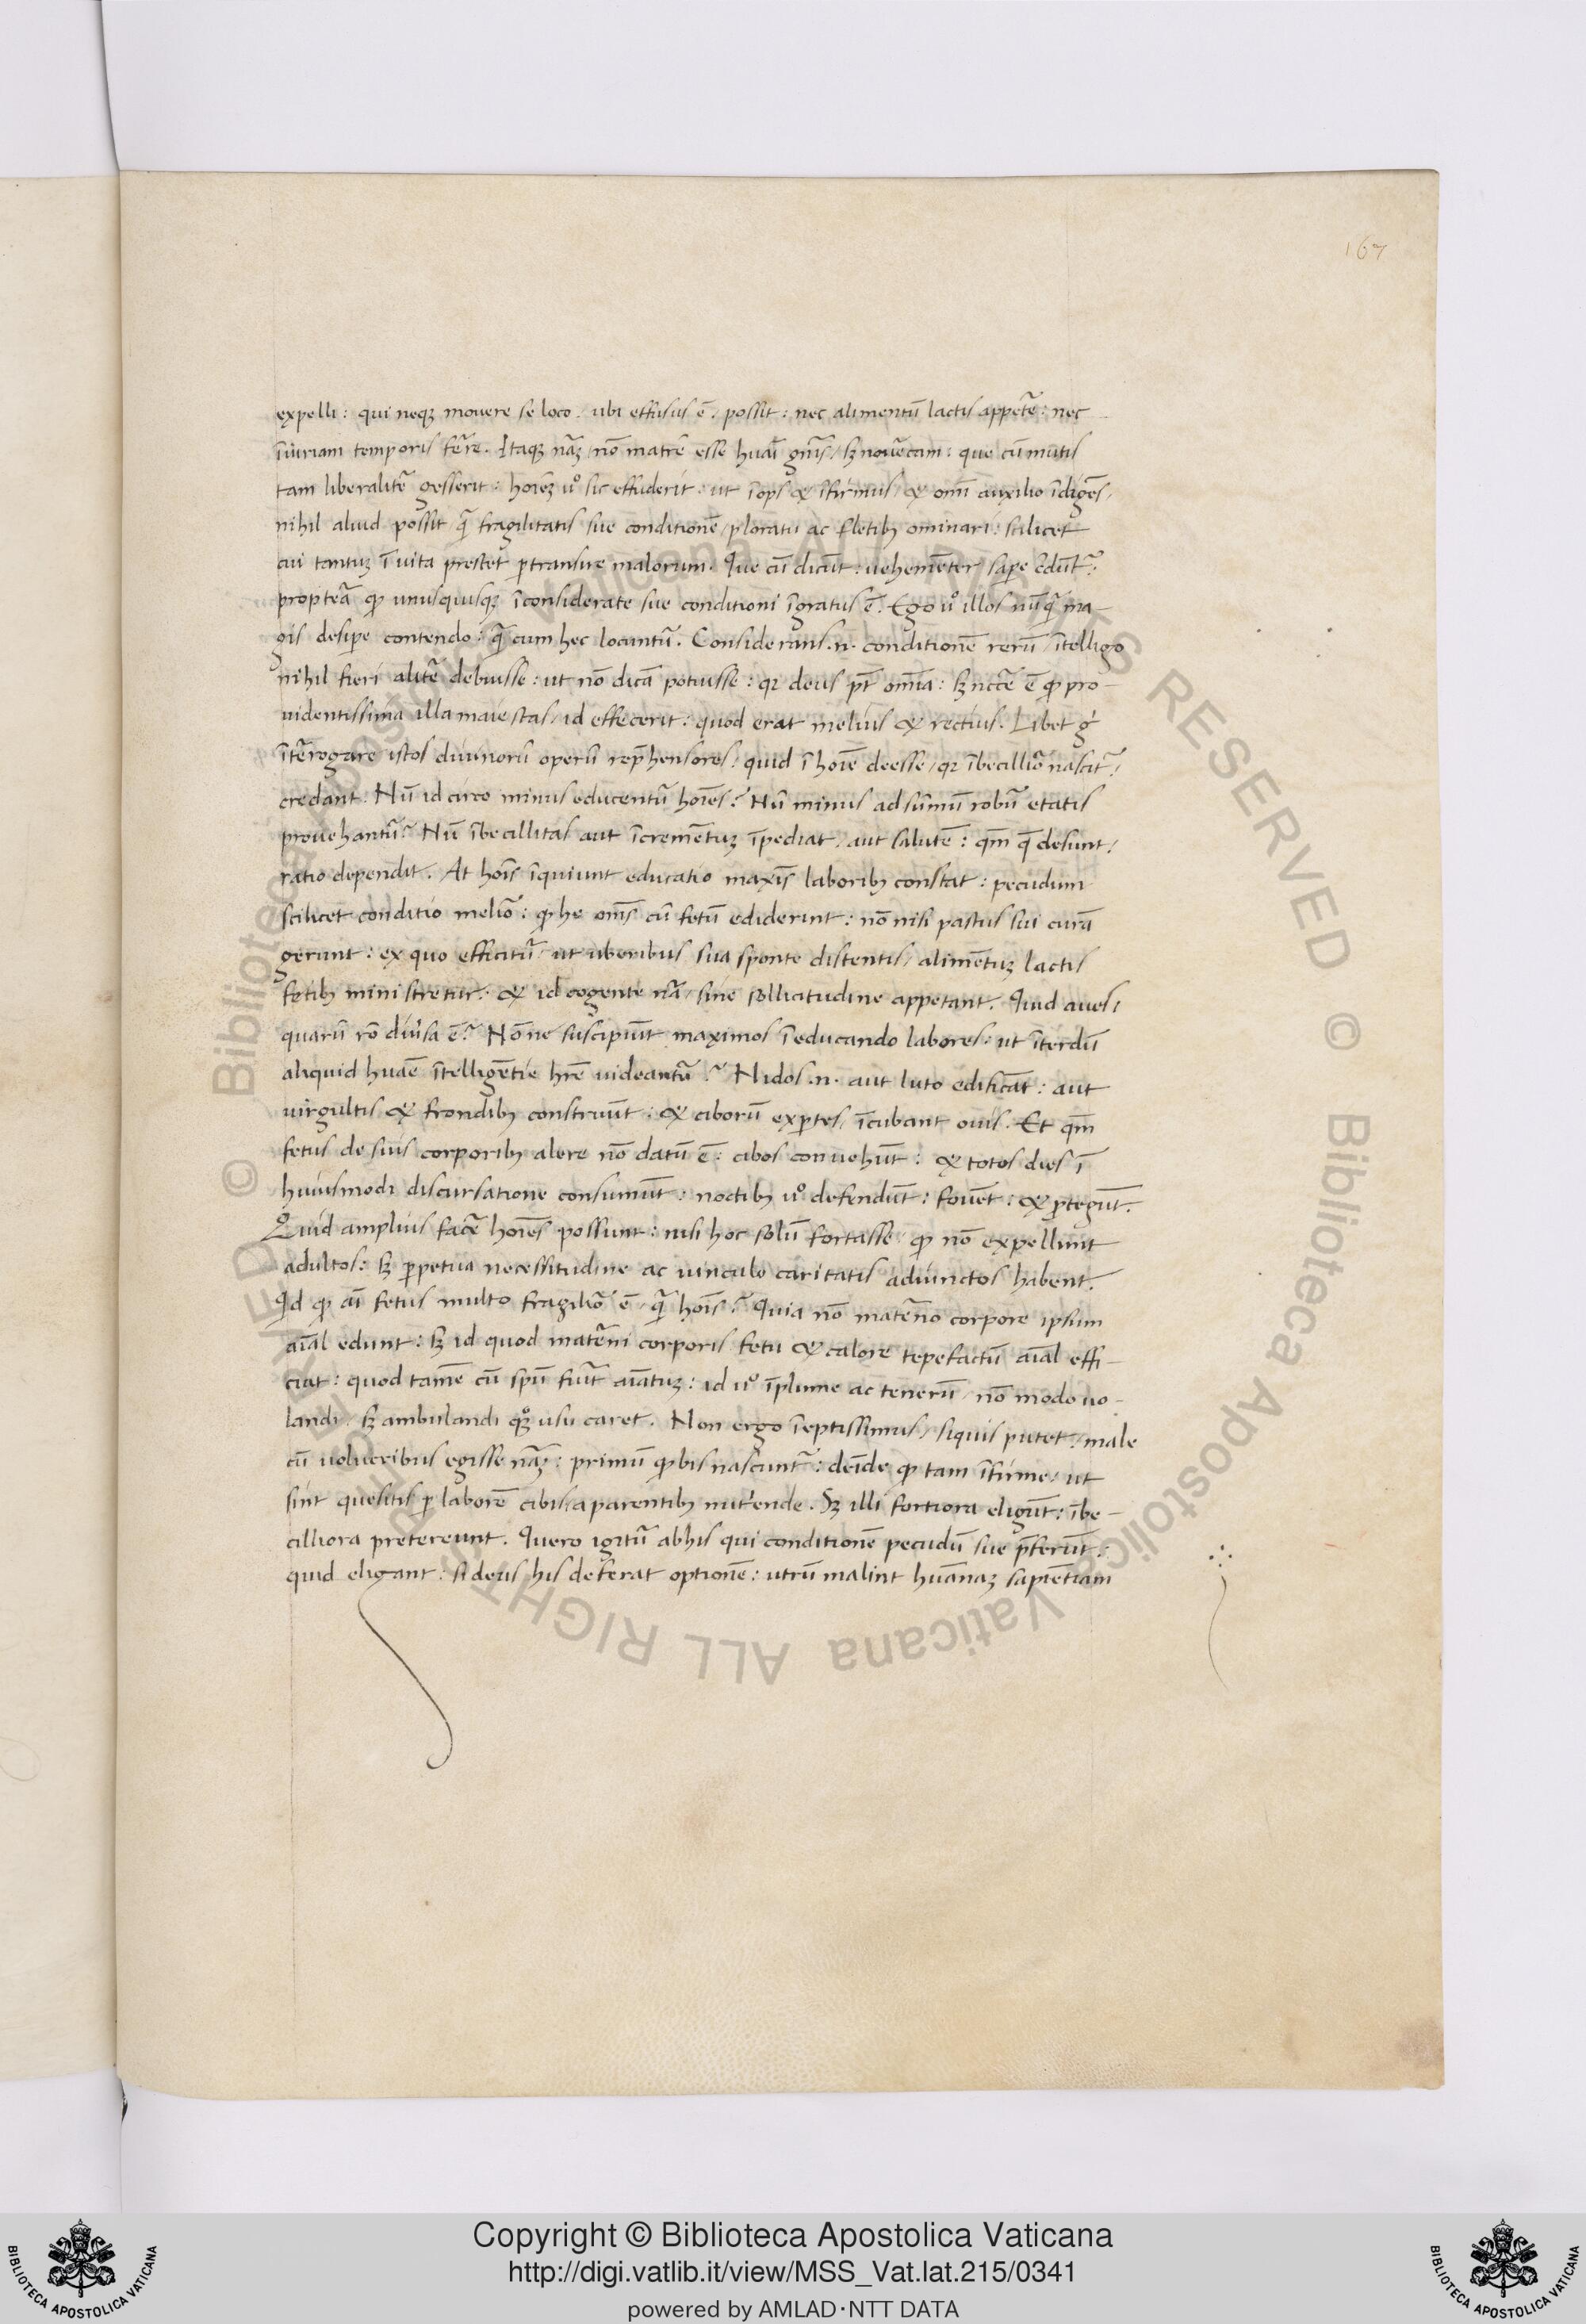 167
expelli: qui neqȝ mouere se loco / ubi effusus ē / possit: nec alimentū lactis appetē̃: nec
īiuriam temporis fēre. Itaqȝ nāȝ / nō matrē esse huāi gn̄is / sȝ nouēcam: que cū mutis
tam liberalitē gesserit: hoīeȝ uº sic effuderit: ut īops & īfirmus / & omī auxilio īdigēs /
nihil aliud possit / q̄ fragilitatis sue conditionē / ploratu ac fletibȝ ominari: scilicet
cui tantuȝ ī uita prestet ꝑtransire malorum. Que cū dicūt: uehemēter sapere c̄dūt̃:
propteā ꝙ unusquisqȝ īconsiderate sue conditioni īgratus ē. Ego uº illos nūq̄ ma-
gis desipe contendo: q̄ cum hec locuntū. Considerans .n. conditionē rerū / ītelligo
nihil fieri alitē debuisse: ut nō dicā potuisse: qꝛ deus pt̄ omīa: sȝ nēcē ē ꝙ pro-
uidentissima illa maiestas / id effecerit: quod erat melius & rectius. Libet g̊
ītērogare istos diuinorū operū rep̄hensores: quid ī hoīe deesse / qꝛ ībecilliō nascit̃ /
credant. Nū idcirco minus educentū hoīes? Nū minus ad sūmū robū etatis
prouehantū? Nū ībecillitas aut īcremētuȝ īpediat / aut salutē: qm̄ q̄ desunt /
ratio dependit. At hoīs īquiunt educatio maxīs laboribȝ constat: pecudum
scilicet conditio meliō: ꝙ he om̄s cū fetū ediderint: nō nisi pastus sui curā
gerunt: ex quo efficitū / ut uberibus sua sponte distentis / alimētuȝ lactis
fetibȝ ministretur: & id cogente nā / sine sollicitudine appetant. Quid aues /
quarū rō diūsa ē? Nōne suscipiūt maximos ī educando labores: ut īterdū
aliquid huāe ītelligētie hr̄e uideantū? Nidos .n. aut luto edificāt: aut
uirgultis & frondibȝ construūt: & ciborū exꝑtes / īcubant ouis. Et qm̄
fetus de suis corporibȝ alere nō datū ē: cibos conuehūt: & totos dies ī
huiusmodi discursatione consumūt: noctibȝ uº defendūt: fouēt: & ꝓtegūt.
Quid amplius facē hoīes possunt: nisi hoc solū fortasse / ꝙ nō expellunt
adultos: sȝ ꝑpetua necessitudine ac uinculo caritatis adiunctos habent.
Qd ꝙ aī fetus multo fragiliō ē / q̄ hoīs? Quia nō matēno corpore ipsum
aīal edunt: sȝ id quod matēni corporis fetu & calore tepefactū aīal effi-
ciat: quod tamē cū spū fuīt aīatuȝ: id uº īplume ac tenerū / nō modo uo-
landi / sȝ ambulandi qȝº usu caret. Non ergo īeptissimus / siquis putet / male
cū uolucribus egisse nāȝ: primū ꝙ bis nascunt̃: deīde ꝙ tam īfirme: ut
sint quesitis ꝑ laborē cibis / a parentibȝ nut̾ende. Sȝ illi fortiora eligūt: ībe-
cilliora pretereunt. Quero igitū abhis qui conditionē pecudū sue p̄ferūt:
quid eligant: si deus his deferat optionē: utrū malint huānaȝ sapiētiam